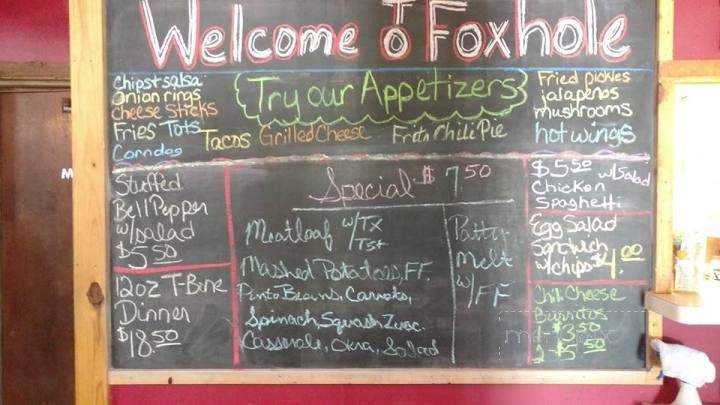 Welcome to Foxhole
Chips & salsa
Onion rings
Cheese Sticks
Fries Tots
Corndog
Try our Appetizers
Tacos Grilled Cheese Frito Chili Pie
Fried pickles
jalapenos
mushrooms
hot wings
Stuffed
Bell Pepper
w/salad
$5.50
12oz T-Bone
Dinner
$18.50
Special $7.50
Meatloaf w/TX
Tst
Mashed Potatoes, FF.
Pinto Beans, Carrots,
Spinach, Squash Zucc.
Casserole, Okra, Salad
Patty
melt
w/FF
$5.50 w/Salad
Chicken
Spaghetti
Egg Salad
Sandwich
w/chips $4.00
Chili Cheese
Burritos
1-$3.50
2-$5.50